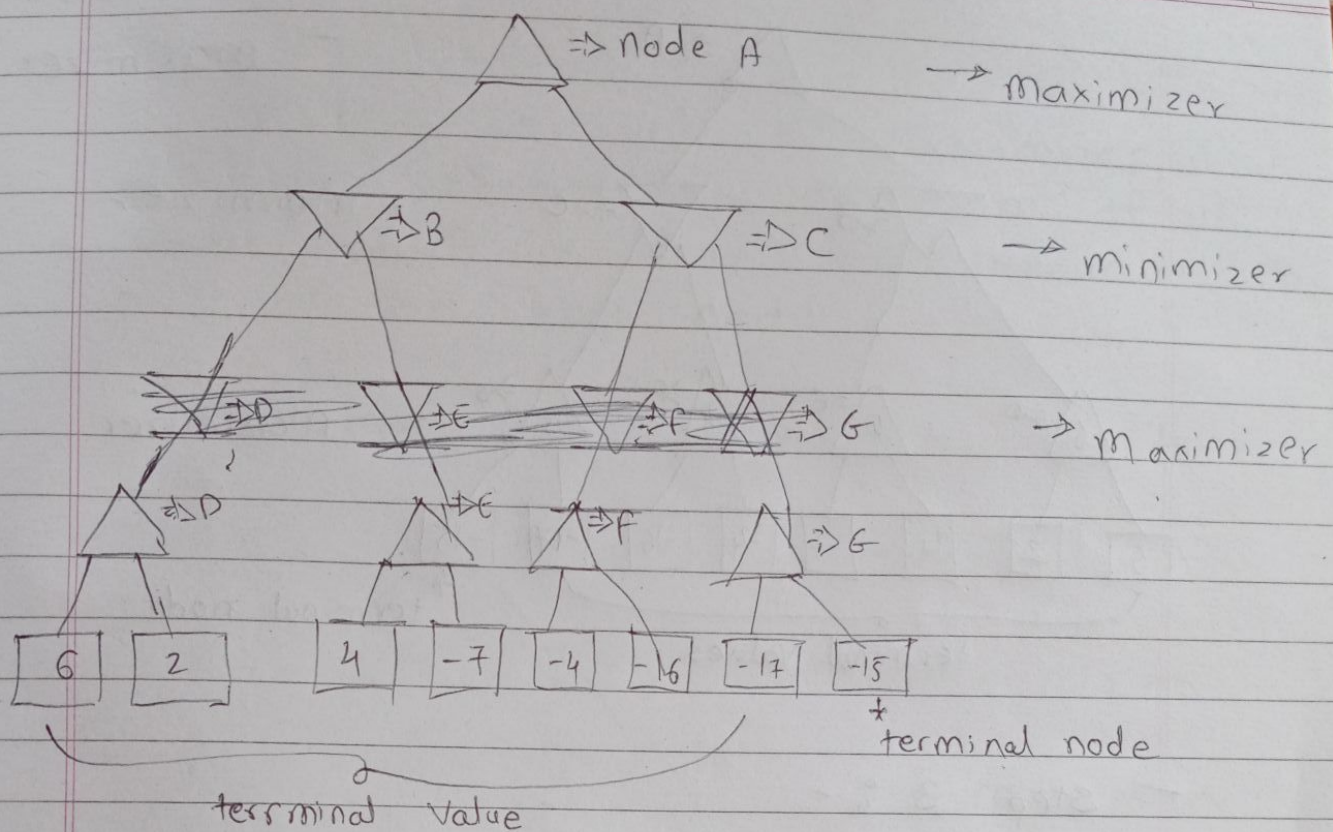 ⇒ node A → maximizer
⇒ B
⇒ C → minimizer
⇒ D ⇒ E ⇒ F ⇒ G → Maximizer
⇒ D ⇒ E ⇒ F ⇒ G
6 2 4 -7 -4 -16 -17 -15
terminal node
terrminal value